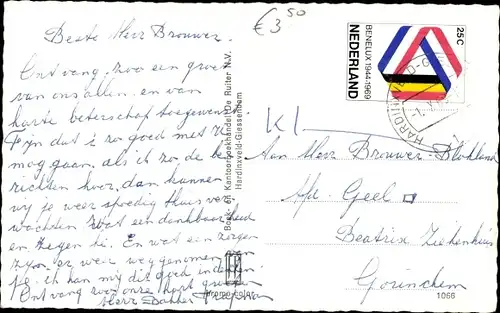 Beste Herr Brouwer.
€ 3 50
Ontvang zoo een groet
van ons allen. en van
harte beterschap toegewenst
Fijn dat 't zo goed met U
mog gaan. als ik zo de be
richten hoor, dan kunnen
wij je weer spoedig thuis ver
wachten wat een dankbaarheid
en zegen hè. En wat een zorgen
zijn er weer weggenomen
ik kan mij dit goed indenken.
Ontvang voor onze hart groeten
Herr Bakker
Boek- en Kantoorboekhandel De Ruiter N.V.
Hardinxveld-Giessendam
promo-color
NEDERLAND
BENELUX 1944-1969
25C
HARDINXVELD-G
Kl
Aan Herr Brouwer-Blokland
Afd. Geel
Beatrix Ziekenhuis
Gorinchem
1066